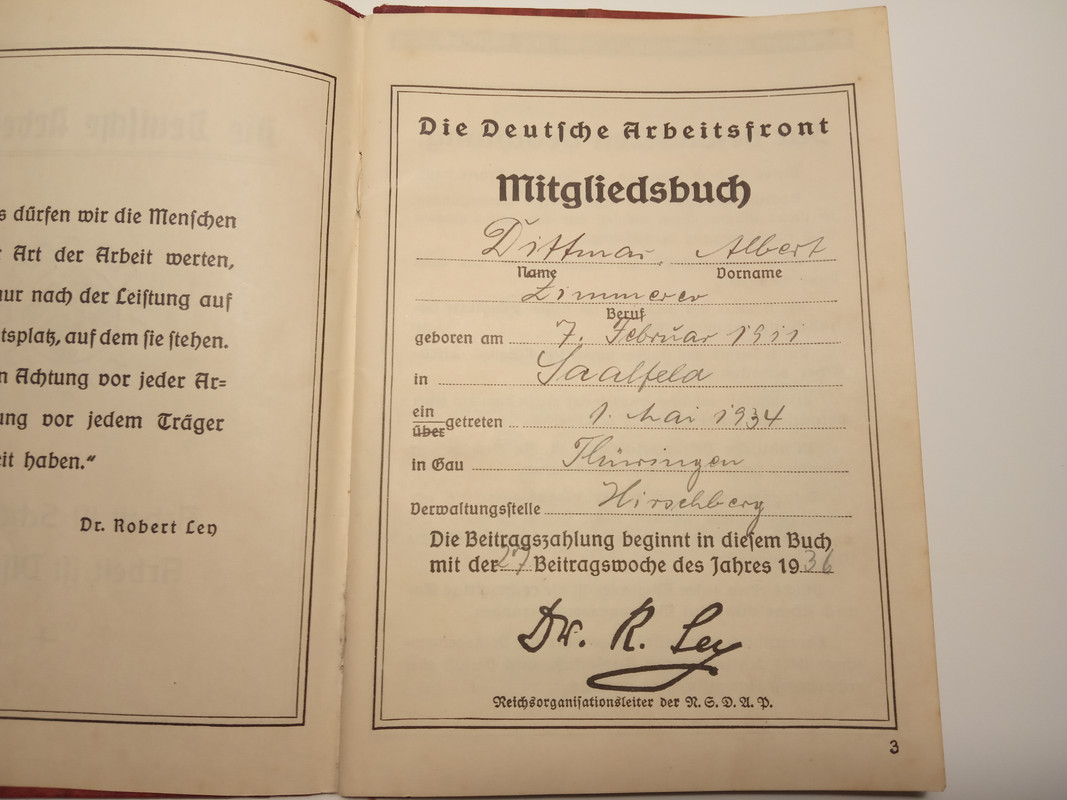 s dürfen wir die Menschen
r Art der Arbeit werten,
nur nach der Leistung auf
tsplatz, auf dem sie stehen.
n Achtung vor jeder Ar=
ung vor jedem Träger
eit haben.“
Dr. Robert Ley
Die Deutsche Arbeitsfront
Mitgliedsbuch
Dittmar, Albert
Name Vorname
Zimmerer
Beruf
geboren am 7. Februar 1911
in Saalfeld
ein
über getreten 1. Mai 1934
in Gau Thüringen
Verwaltungsstelle Hirschberg
Die Beitragszahlung beginnt in diesem Buch
mit der 27 Beitragswoche des Jahres 1936
Dr. R. Ley
Reichsorganisationsleiter der N.S.D.A.P.
3